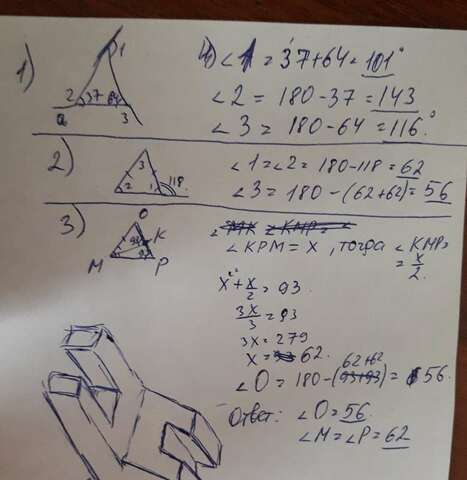 1) 1 2 37 64 3 a
1) ∠1 = 37+64 = 101°
∠2 = 180-37 = 143
∠3 = 180-64 = 116°
2) 3 2 1 118
∠1 = ∠2 = 180-118 = 62
∠3 = 180-(62+62) = 56
3) O K M P 93
∠KPM = x, тогда ∠KMP = x/2
x + x/2 = 93
3x/3 = 93
3x = 279
x = 62
∠O = 180-(62+62) = 56
Ответ: ∠O = 56
∠M = ∠P = 62